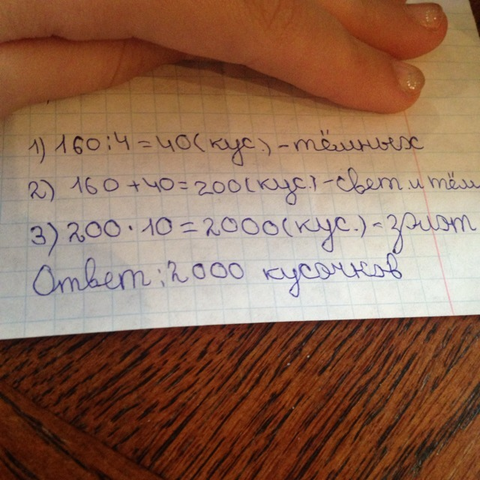 1) 160:4=40(кус.)-тёмных
2) 160+40=200(кус.)-свет и тём
3) 200·10=2000(кус.)-золот
Ответ: 2000 кусочков